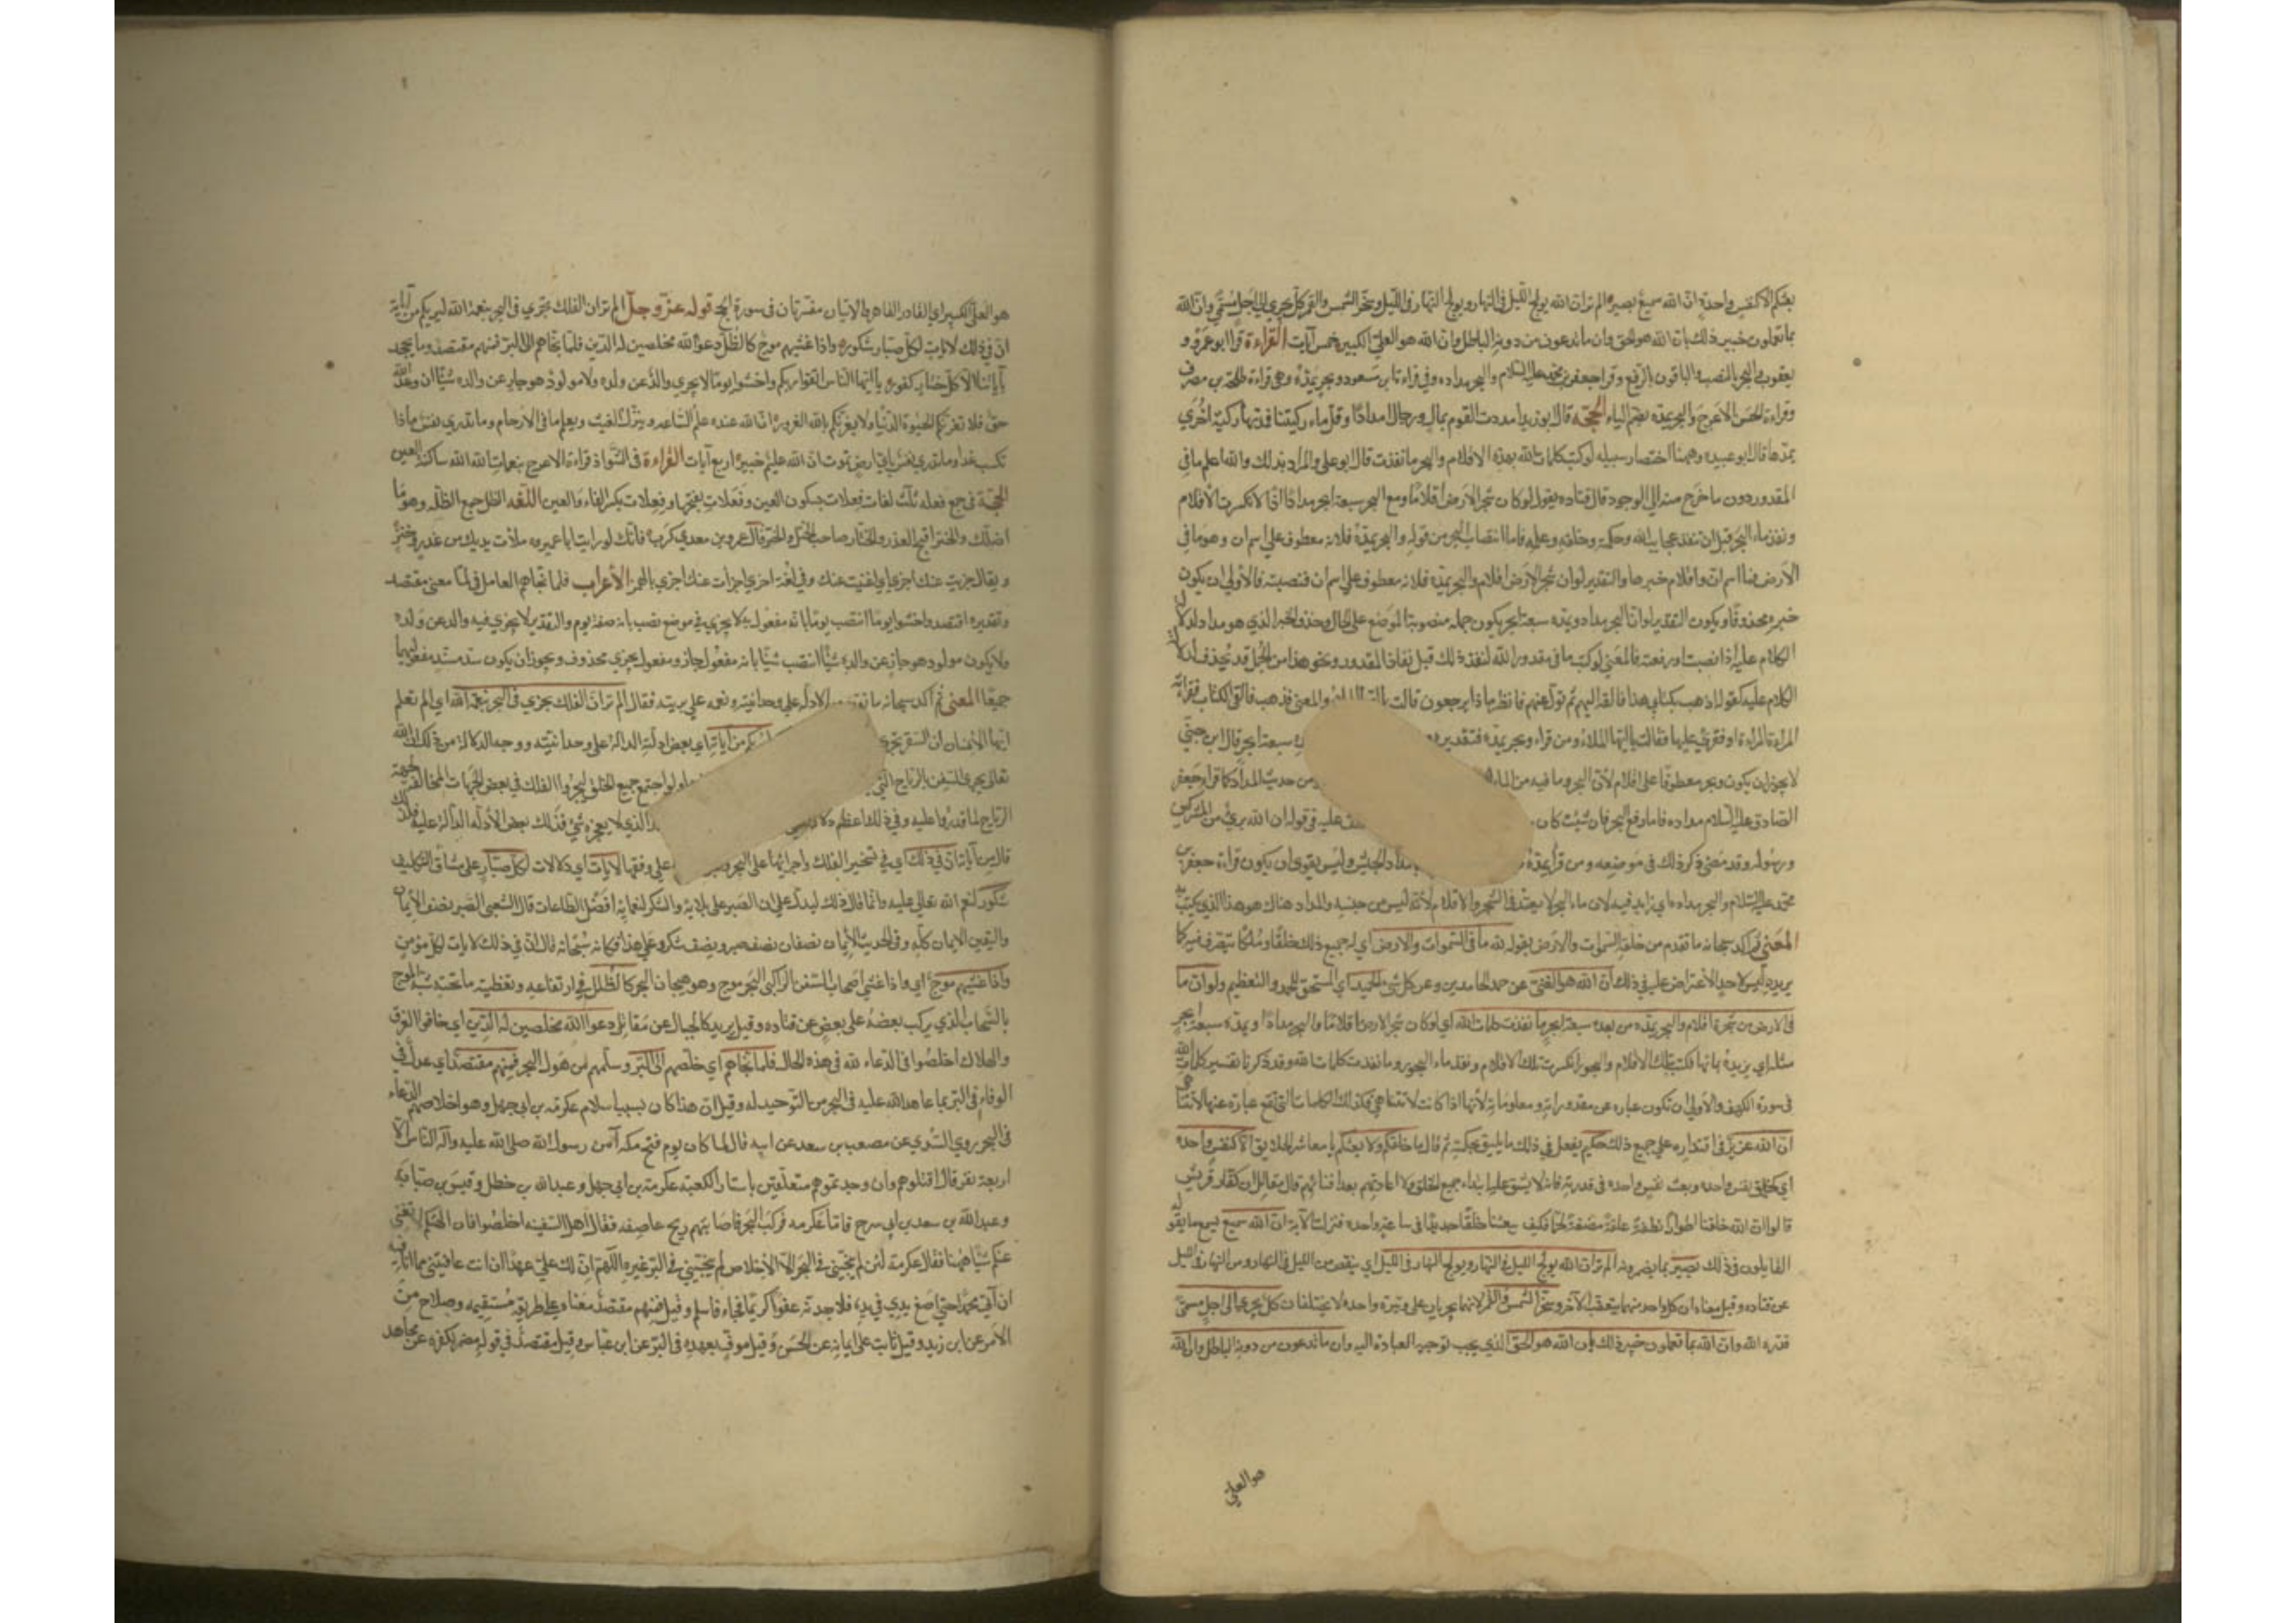 بعثكم الا كنفس واحدة ان الله سميع بصير الم تر ان الله يولج الليل في النهار ويولج النهار في الليل وسخر الشمس والقمر كل يجري الى اجل مسمى وان الله
بما تعملون خبير ذلك بان الله هو الحق وان ما تدعون من دونه الباطل وان الله هو العلي الكبير خمس آيات القراءة قرا ابو عمرو و
يعقوب والبحر بالنصب والباقون بالرفع وقرا جعفر بن محمد عليه السلام والبحر مداده وفي قراءة ابن مسعود وبحر يمده وهي قراءة طلحة بن مصرف
وقراءة الحسن الاعرج والبحر يمده بضم الياء الحجة قال ابو زيد امددت القوم بمال ورجال امدادا وقل ماء ركيتنا فمدتها ركية اخرى
يمدها قال ابو عبيده وهيهنا اختصار سبيله لو كتب كلمات الله بهذه الاقلام والبحر ما نفذت قال ابو علي والمراد بذلك والله اعلم ما في
المقدور دون ما خرج منه الى الوجود قال قتاده يقول لو كان شجر الارض اقلاما ومع البحر سبعة ابحر مدادا اذا لانكسرت الاقلام
ونفذ ماء البحر قبل ان تنفذ عجايب الله وحكمته وخلقه وعلمه فاما انتصاب البحر من قوله والبحر يمده فلانه معطوف على اسم ان وهو ما في
الارض فما اسم ان واقلام خبرها والتقدير لو ان شجر الارض اقلام والبحر يمده فلانه معطوف على اسم ان فنصبته فالاولى ان يكون
خبره محذوفا ويكون التقدير لو ان البحر مدادا ويمده سبعة ابحر يكون جملة منصوبة الموضع على الحال وحذف الخبر الذي هو مدادا لدلالة
الكلام عليه اذا نصبت او رفعت فالمعنى لو كتب ما في مقدور الله لنفذ ذلك قبل نفاذ المقدور ونحو هذا من الجمل قد تحذف لدلالة
الكلام عليه كقوله اذهب بكتابي هذا فالقه اليهم ثم تول عنهم فانظر ماذا يرجعون قالت والمعنى فذهب فالقى الكتاب فقراته
المراة او فقرئ عليها فقالت يا ايها الملاء ومن قراء وبحر يمده فتقديره سبعة ابحر قال ابن جني
لا يجوز ان يكون وبحر معطوفا على اقلام لان البحر وما فيه من الماء من حديث المداد كما قرا جعفر
الصادق عليه السلام مداده فاما رفع البحر فان شئت كان عليه في قوله ان الله بريء من المشركين
ورسوله وقد مضى ذكر ذلك في موضعه ومن قرا يمده امداد الجيش وليس يقوى ان يكون قراءة جعفر بن
محمد عليه السلام والبحر مداده اي زايد فيه لان ماء البحر لا يعتد في الشجر والاقلام لانه ليس من جنسه والمداد هناك هو هذا الذي يكتب به
المعنى ثم اكد سبحانه ما تقدم من خلقه السموات والارض بقوله لله ما في السموات والارض اي له جميع ذلك خلقا وملكا يتصرف فيه كما
يريد ليس لاحد الاعتراض عليه في ذلك ان الله هو الغني عن حمد الحامدين وعن كل شيء الحميد اي المستحق للحمد والتعظيم ولو ان ما
في الارض من شجرة اقلام والبحر يمده من بعده سبعة ابحر ما نفذت كلمات الله اي لو كان شجر الارض اقلاما والبحر مدادا ويمده سبعة ابحر
مثله اي يزيده بمائها فكتب بتلك الاقلام والبحور انكسرت تلك الاقلام ونفد ماء البحور وما نفدت كلمات الله وقد ذكرنا تفسير كلمات الله
في سورة الكهف والاولى ان تكون عباره عن مقدوراته ومعلوماته لانها اذا كانت لا تتناهى فكذلك الكلمات التي تقع عبارة عنها لا تتناهى
ان الله عزيز في اقتداره على جميع ذلك حكيم يفعل في ذلك ما يليق بحكمته ثم قال ما خلقكم ولا بعثكم يا معاشر الخلايق الا كنفس واحده
اي كخلق نفس واحده وبعث نفس واحده في قدرته فانه لا يشق عليه ابتداء جميع الخلق ولا اعادتهم بعد افنائهم قال مقاتل ان كفار قريش
قالوا ان الله خلقنا اطوارا نطفة علقة مضغة لحما فكيف يبعثنا خلقا جديدا في ساعة واحده فنزلت الآية ان الله سميع يسمع ما يقوله
القايلون في ذلك بصير بما يضمرونه الم تر ان الله يولج الليل في النهار ويولج النهار في الليل اي ينقص من الليل في النهار ومن النهار في الليل
عن قتاده وقيل معناه ان كل واحد منهما يتعقب الآخر وسخر الشمس والقمر لانهما يجريان على وتيرة واحده لا يختلفان كل يجري الى اجل مسمى
قدره الله وان الله بما تعملون خبير ذلك بان الله هو الحق الذي يجب توجيه العبادة اليه وان ما تدعون من دونه الباطل وان الله
هو العلي
هو العلي الكبير اي القادر القاهر والايتان مفسرتان في سورة الحج قوله عز وجل الم تر ان الفلك تجري في البحر بنعمة الله ليريكم من آياته
ان في ذلك لايات لكل صبار شكور واذا غشيهم موج كالظلل دعوا الله مخلصين له الدين فلما نجاهم الى البر فمنهم مقتصد وما يجحد
بآياتنا الا كل ختار كفور يا ايها الناس اتقوا ربكم واخشوا يوما لا يجزي والد عن ولده ولا مولود هو جاز عن والده شيئا ان وعد الله
حق فلا تغرنكم الحيوة الدنيا ولا يغرنكم بالله الغرور ان الله عنده علم الساعه وينزل الغيث ويعلم ما في الارحام وما تدري نفس ماذا
تكسب غدا وما تدري نفس باي ارض تموت ان الله عليم خبير اربع آيات القراءة في الشواذ قراءة الاعرج بنعمات الله ساكنة العين
الحجة في جمع فعله ثلث لغات فعلات بسكون العين وفعلات بفتحها وفعلات بكسر الفاء والعين اللغه الظلل جمع الظله وهو ما
اظلك والختر اقبح الغدر والختار صاحب الختل والختر قال عمرو بن معدي كرب فانك لو رايت ابا عمير ملات يديك من غدر وختر
ويقال جزيت عنك اجزي اي اغنيت عنك وفي لغة اخرى اجزات عنك اجزي بالهمز الاعراب فلما نجاهم العامل في لما معنى مقتصد
وتقديره اقتصد واخشوا يوما انتصب يوما بانه مفعول به لا يجزي في موضع نصب بانه صفة يوم والتقدير لا يجزي فيه والد عن ولده
ولا يكون مولود هو جاز عن والده شيئا انتصب شيئا بانه مفعول جاز ومفعول يجزي محذوف ويجوز ان يكون سد مسد مفعوليهما
جميعا المعنى ثم اكد سبحانه ما تقدم من الادلة على وحدانيته ونعمه على بريته فقال الم تر ان الفلك تجري في البحر بنعمة الله اي الم تعلم
ايها الانسان ان السفن تجري ليريكم من آياته اي بعض ادلته الدالة على وحدانيته ووجه الدلالة من ذلك ان الله
تعالى يجري السفن بالرياح التي ولو اجتمع جميع الخلق ليجروا الفلك في بعض الجهات المخالفة لجهة
الرياح لما قدروا عليه وفي ذلك اعظم دلالة الذي لا يعجزه شيء فذلك بعض الادلة الدالة عليه فلذلك
قال من آياته ان في ذلك اي في تسخير الفلك واجرائها على البحر على وفقها لايات اي دلالات لكل صبار على مشاق التكليف
شكور لنعم الله تعالى عليه وانما قال ذلك ليدل على ان الصبر على بلايه والشكر لنعمايه افضل الطاعات قال الشعبي الصبر نصف الايمان
واليقين الايمان كله وفي الحديث الايمان نصفان نصف صبر ونصف شكر وعلى هذا فكانه سبحانه قال ان في ذلك لايات لكل مؤمن
واذا غشيهم موج اي واذا غشي اصحاب السفن الراكبي البحر موج وهو هيجان البحر كالظلل في ارتفاعه وتغطيته ما تحته شبه الموج
بالسحاب الذي يركب بعضه على بعض عن قتاده وقيل يريد كالجبال عن مقاتل دعوا الله مخلصين له الدين اي خافوا الغرق
والهلاك اخلصوا في الدعاء لله في هذه الحال فلما نجاهم اي خلصهم الى البر وسلمهم من هول البحر فمنهم مقتصد اي عدل في
الوفاء في البر بما عاهد الله عليه في البحر من التوحيد له وقيل ان هذا كان بسبب اسلام عكرمه بن ابي جهل وهو اخلاصهم الدعاء
في البحر روي السدي عن مصعب بن سعد عن ابيه قال لما كان يوم فتح مكه آمن رسول الله صلى الله عليه وآله الناس الا
اربعة نفر قال اقتلوهم وان وجدتموهم متعلقين باستار الكعبه عكرمة بن ابي جهل وعبد الله بن خطل وقيس بن صبابة
وعبد الله بن سعد بن ابي سرح فاما عكرمه فركب البحر فاصابتهم ريح عاصفه فقال اهل السفينه اخلصوا فان آلهتكم لا تغني
عنكم شيئا هيهنا فقال عكرمة لئن لم ينجني في البحر الا الاخلاص لم ينجيني في البر غيره اللهم ان لك علي عهدا ان انت عافيتني مما انا فيه
ان آتي محمدا حتى اضع يدي في يده فلاجدنه عفوا كريما فجاء فاسلم وقيل فمنهم مقتصد معناه على طريقه مستقيمه وصلاح من
الامر عن ابن زيد وقيل ثابت على ايمانه عن الحسن وقيل موف بعهده في البر عن ابن عباس وقيل مقتصد في قوله مضمر لكفره عن مجاهد